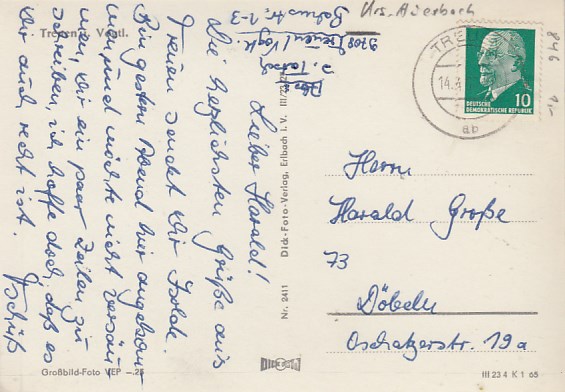 Treuen i. Vogtl.
Urs. Auerbach
Abs.
J.
9708 Treuen/Vogtl.
Bahnstr. 1-3
Lieber Harald!
Die herzlichsten Grüße aus
Treuen sendet Dir Isolde.
Bin gestern Abend hier angekom-
men und möchte nicht versäu-
men, Dir ein paar Zeilen zu
schreiben, ich hoffe doch, daß es
Dir auch recht ist.
Tschüß
Großbild-Foto VEP –.25
Nr. 2411
Dick-Foto-Verlag, Erlbach i. V.
DICK
TRE
14.
ab
10
DEUTSCHE
DEMOKRATISCHE REPUBLIK
846
1,-
Herrn
Harald Große
73
Döbeln
Oschatzerstr. 19a
III 23 4 K 1 65